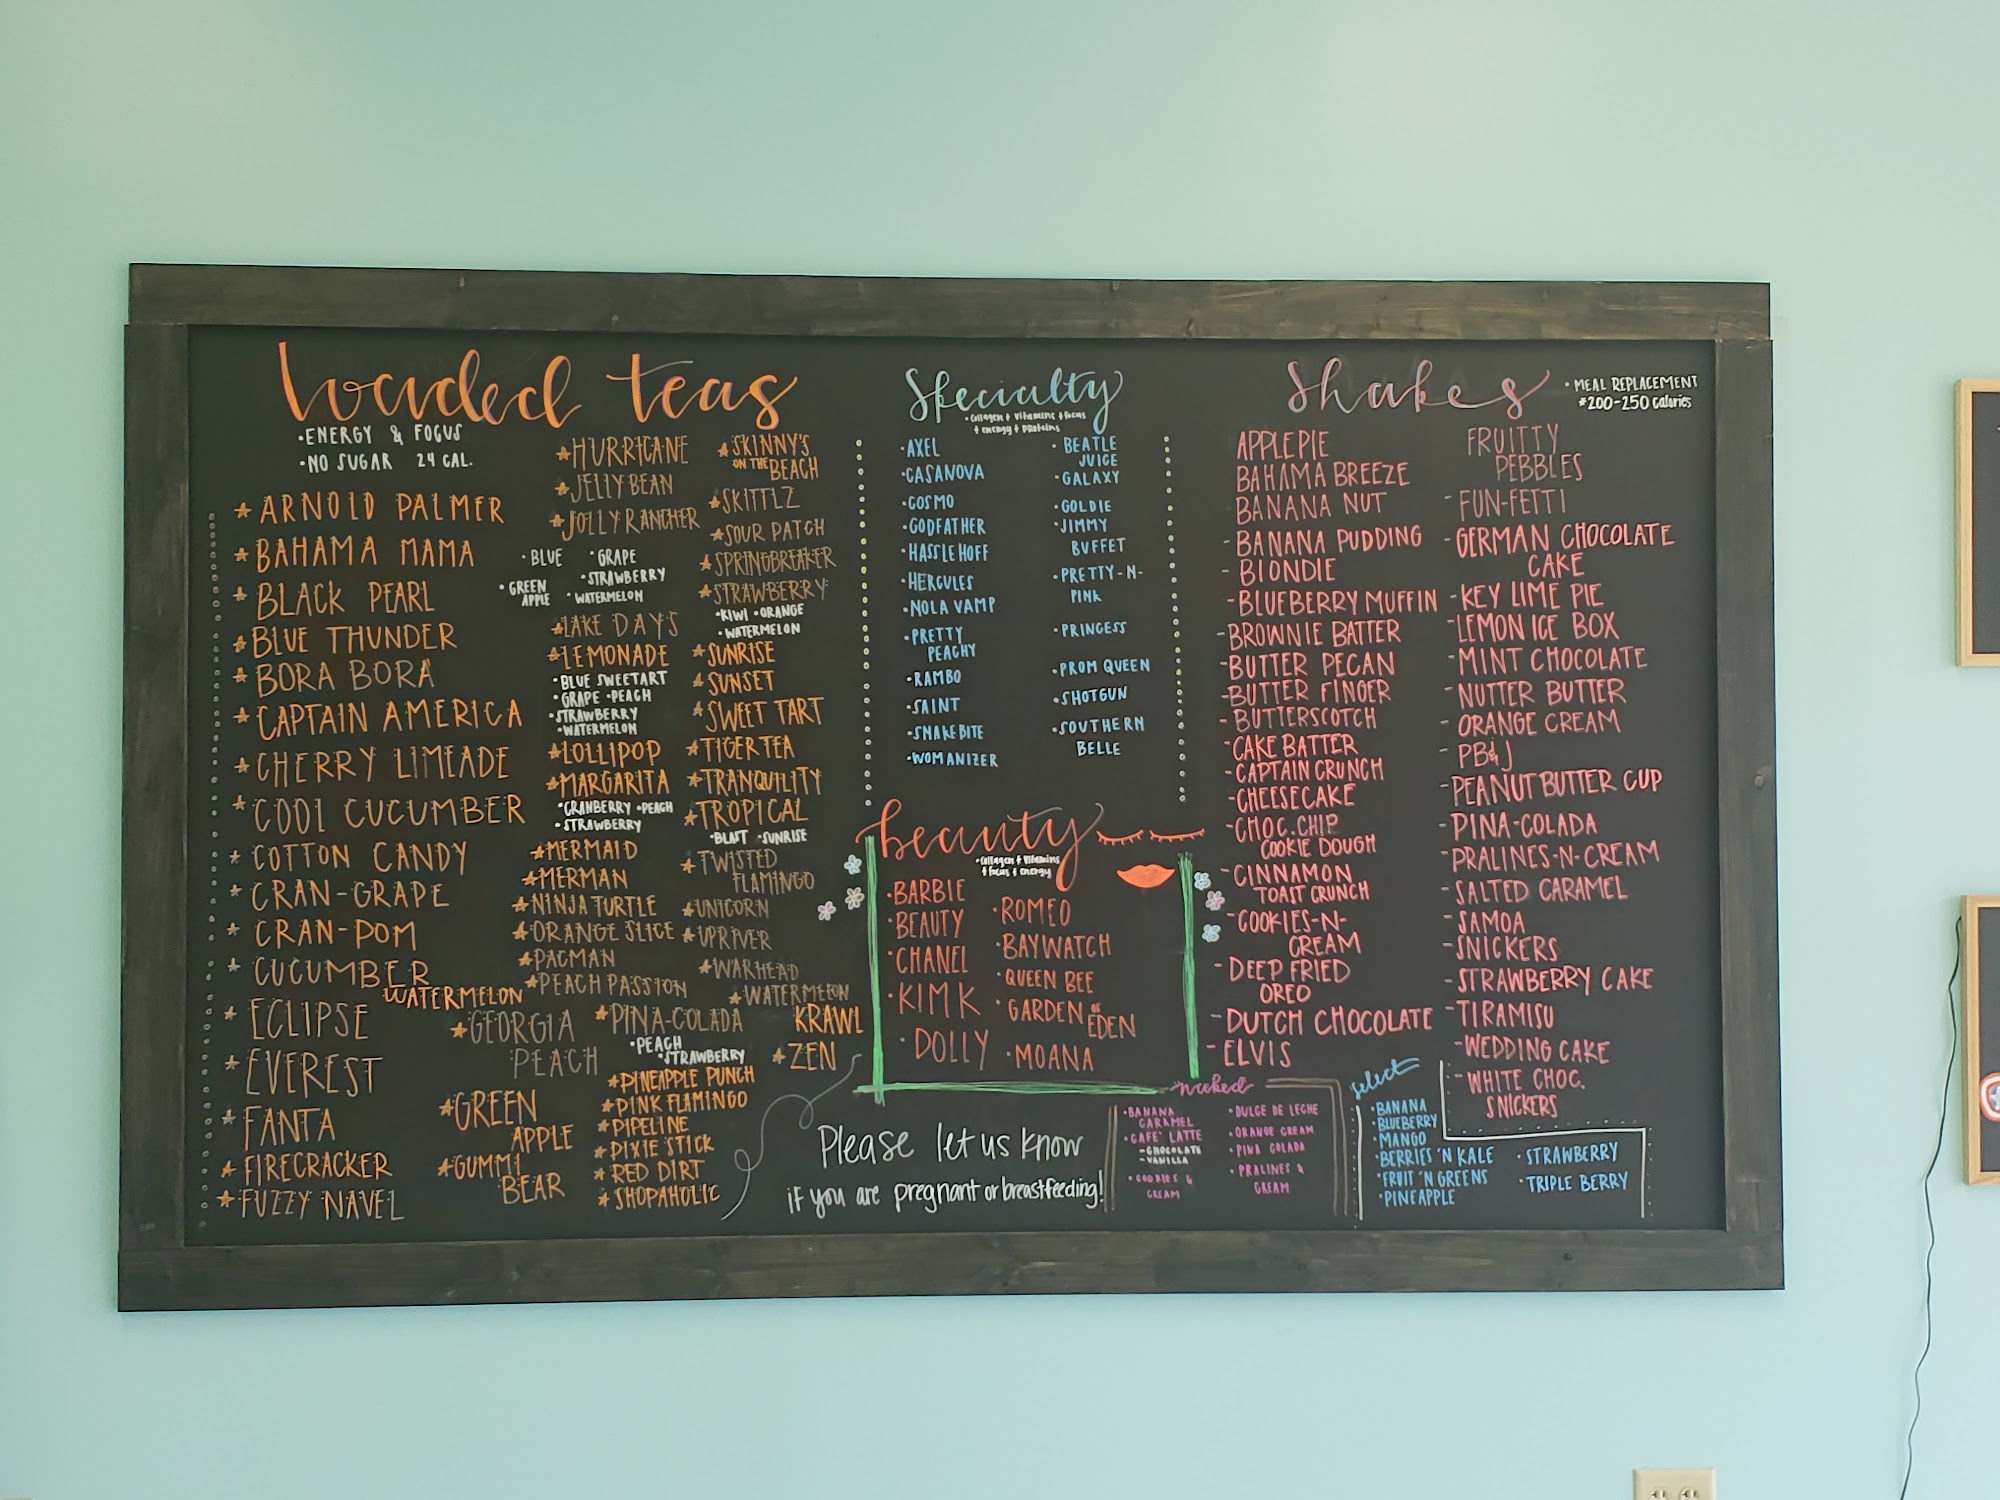 loaded teas
•ENERGY & FOCUS
•NO SUGAR 24 CAL.
★ARNOLD PALMER
★BAHAMA MAMA
★BLACK PEARL
★BLUE THUNDER
★BORA BORA
★CAPTAIN AMERICA
★CHERRY LIMEADE
★COOL CUCUMBER
★COTTON CANDY
★CRAN-GRAPE
★CRAN-POM
★CUCUMBER
WATERMELON
★ECLIPSE
★EVEREST
★FANTA
★FIRECRACKER
★FUZZY NAVEL
★GEORGIA
PEACH
★GREEN
APPLE
★GUMMI
BEAR
★HURRICANE
★JELLY BEAN
★JOLLY RANCHER
•BLUE •GRAPE
•GREEN
APPLE
•STRAWBERRY
•WATERMELON
★LAKE DAYS
★LEMONADE
•BLUE SWEETART
•GRAPE •PEACH
•STRAWBERRY
•WATERMELON
★LOLLIPOP
★MARGARITA
•CRANBERRY •PEACH
•STRAWBERRY
★MERMAID
★MERMAN
★NINJA TURTLE
★ORANGE SLICE
★PACMAN
★PEACH PASSION
★PINA-COLADA
•PEACH
•STRAWBERRY
★PINEAPPLE PUNCH
★PINK FLAMINGO
★PIPELINE
★PIXIE STICK
★RED DIRT
★SHOPAHOLIC
★SKINNY'S
ON THE BEACH
★SKITTLZ
★SOUR PATCH
★SPRINGBREAKER
★STRAWBERRY
•KIWI •ORANGE
•WATERMELON
★SUNRISE
★SUNSET
★SWEET TART
★TIGER TEA
★TRANQUILITY
★TROPICAL
•BLAST •SUNRISE
★TWISTED
FLAMINGO
★UNICORN
★UPRIVER
★WARHEAD
★WATERMELON
KRAWL
★ZEN
Specialty
•Collagen + Vitamins + Focus
+ energy + proteins
•AXEL
•CASANOVA
•COSMO
•GODFATHER
•HASSLEHOFF
•HERCULES
•NOLA VAMP
•PRETTY
PEACHY
•RAMBO
•SAINT
•SNAKE BITE
•WOMANIZER
•BEATLE
JUICE
•GALAXY
•GOLDIE
•JIMMY
BUFFET
•PRETTY-N-
PINK
•PRINCESS
•PROM QUEEN
•SHOTGUN
•SOUTHERN
BELLE
beauty
•Collagen + Vitamins
+ Focus + energy
•BARBIE
•BEAUTY
•CHANEL
•KIM K
•DOLLY
•ROMEO
•BAYWATCH
•QUEEN BEE
•GARDEN OF
EDEN
•MOANA
Please let us know
if you are pregnant or breastfeeding!
Shakes
•MEAL REPLACEMENT
*200-250 Calories
APPLE PIE
BAHAMA BREEZE
BANANA NUT
-BANANA PUDDING
-BLONDIE
-BLUEBERRY MUFFIN
-BROWNIE BATTER
-BUTTER PECAN
-BUTTER FINGER
-BUTTERSCOTCH
-CAKE BATTER
-CAPTAIN CRUNCH
-CHEESECAKE
-CHOC. CHIP
COOKIE DOUGH
-CINNAMON
TOAST CRUNCH
-COOKIES-N-
CREAM
-DEEP FRIED
OREO
-DUTCH CHOCOLATE
-ELVIS
FRUITTY
PEBBLES
-FUN-FETTI
-GERMAN CHOCOLATE
CAKE
-KEY LIME PIE
-LEMON ICE BOX
-MINT CHOCOLATE
-NUTTER BUTTER
-ORANGE CREAM
-PB&J
-PEANUT BUTTER CUP
-PINA-COLADA
-PRALINES-N-CREAM
-SALTED CARAMEL
-SAMOA
-SNICKERS
-STRAWBERRY CAKE
-TIRAMISU
-WEDDING CAKE
-WHITE CHOC.
SNICKERS
naked
•BANANA
CARAMEL
•CAFE' LATTE
-CHOCOLATE
-VANILLA
•COOKIES &
CREAM
•DULCE DE LECHE
•ORANGE CREAM
•PINA COLADA
•PRALINES &
CREAM
select
•BANANA
•BLUEBERRY
•MANGO
•BERRIES 'N KALE
•FRUIT 'N GREENS
•PINEAPPLE
•STRAWBERRY
•TRIPLE BERRY